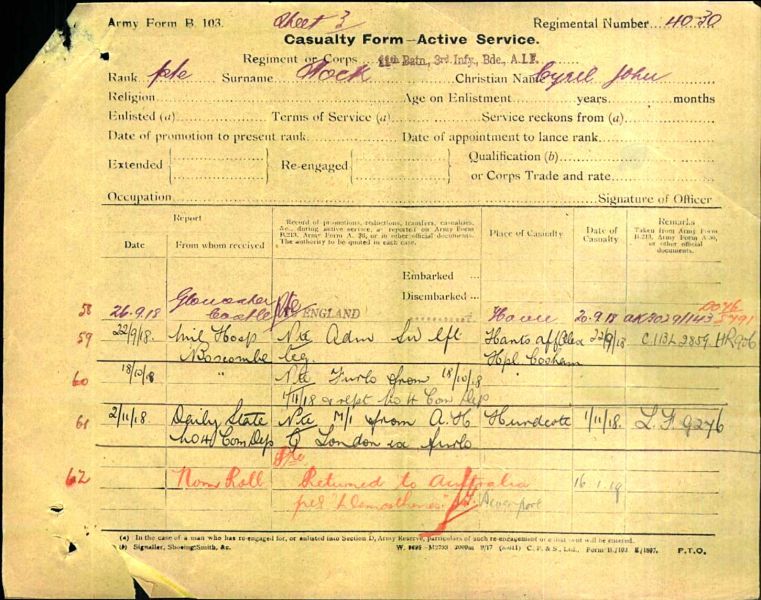 Army Form B. 103. Sheet 3 Regimental Number 4030
Casualty Form—Active Service.
Regiment or Corps 11th Batn, 3rd Infy, Bde, A.I.F.
Rank pte Surname Christian Name Cyril John
Religion Age on Enlistment years months
Enlisted (a) Terms of Service (a) Service reckons from (a)
Date of promotion to present rank Date of appointment to lance rank
Extended Re-engaged Qualification (b)
or Corps Trade and rate
Occupation Signature of Officer
Report
Date From whom received
Record of promotions, reductions, transfers, casualties,
&c., during active service, as reported on Army Form
B.213, Army Form A. 36, or in other official documents.
The authority to be quoted in each case.
Place of Casualty
Date of
Casualty
Remarks
Taken from Army Form
B.213, Army Form A.36,
or other official
documents.
Embarked
Disembarked
58 26.9.18 Gloucester Castle ENGLAND Havre 20.9.18
59 22/9/18. Mily Hosp Adm Hants
Boscombe leg. Hpl Cosham
60 18/10/18 " Furlo from 18/10/18
1/11/18 & rept No 4 Com Dep
61 2/11/18. Daily State M/I from A.H. Hurdcott 1/11/18. L.F. 9276
No 4 Com Dep London ex furlo
62 Nom Roll Returned to Australia 16.1.19
per "Demosthenes" Devonport
(a) In the case of a man who has re-engaged for, or enlisted into Section D, Army Reserve, particulars of such re-engagement or enlistment will be entered.
(b) Signaller, Shoeing Smith, &c. P.T.O.